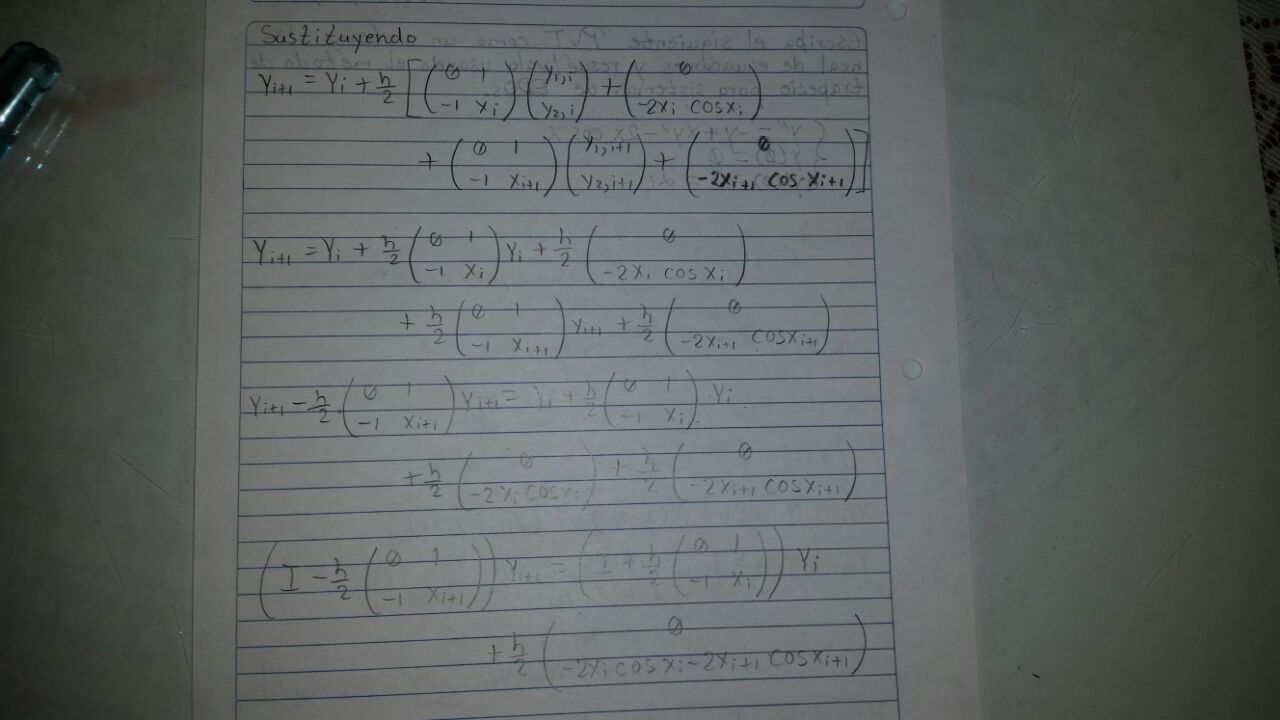 Sustituyendo
Y_{i+1} = Y_i + h/2 [ ( 0 1 ; -1 x_i ) ( y_{1,i} ; y_{2,i} ) + ( 0 ; -2x_i cos x_i )
+ ( 0 1 ; -1 x_{i+1} ) ( y_{1,i+1} ; y_{2,i+1} ) + ( 0 ; -2x_{i+1} cos x_{i+1} ) ]
Y_{i+1} = Y_i + h/2 ( 0 1 ; -1 x_i ) Y_i + h/2 ( 0 ; -2x_i cos x_i )
+ h/2 ( 0 1 ; -1 x_{i+1} ) Y_{i+1} + h/2 ( 0 ; -2x_{i+1} cos x_{i+1} )
Y_{i+1} - h/2 ( 0 1 ; -1 x_{i+1} ) Y_{i+1} = Y_i + h/2 ( 0 1 ; -1 x_i ) Y_i
+ h/2 ( 0 ; -2x_i cos x_i ) + h/2 ( 0 ; -2x_{i+1} cos x_{i+1} )
( I - h/2 ( 0 1 ; -1 x_{i+1} ) ) Y_{i+1} = ( I + h/2 ( 0 1 ; -1 x_i ) ) Y_i
+ h/2 ( 0 ; -2x_i cos x_i - 2x_{i+1} cos x_{i+1} )